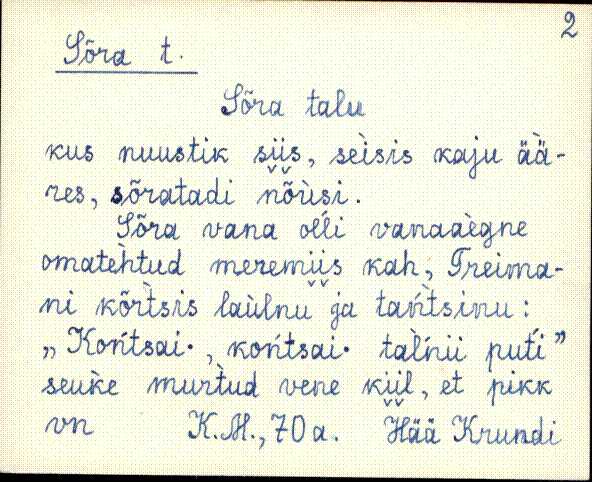 2
Sõra t.
Sõra talu
kus nuustik si̬i̬s, seìsis kaju äà̈-
res, sõratadi nõùsi.
Sõra vana olĺi vanaaègne
omatèhtud meremi̬i̬s kah, Treima-
ni kõr̀tsis laùlnu ja tań̀tsinu:
„Końtsai·, końtsai· tal̀nii put́i”
seuk̀e murtud vene ki̬i̬l, et pikk
vn K.M., 70 a. Hää Krundi